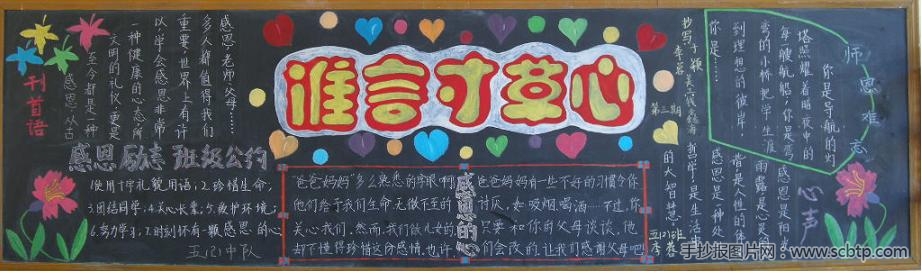 谁言寸草心
刊首语
感恩从古
至今都是一种
文明的礼仪，更是
一种健康的心态所
以，学会感恩非常
重要，世界上有许
多人都值得我们
感恩：老师父母……
感恩励志 班级公约
1.使用十字礼貌用语，2.珍惜生命，
3.团结同学，4.关心长辈，5.爱护环境，
6.努力学习，7.时刻怀有一颗感恩的心
五(2)中队
感恩的心
"爸爸妈妈"多么熟悉的字眼啊！
他们给予我们生命，无微不至的
关心我们。然而，我们做儿女的
却不懂得珍惜这份感情，也许
爸爸妈妈有一些不好的习惯令你
讨厌，如吸烟、喝酒……不过，你
只要和你的父母谈谈，他
们会改的，让我们感谢父母吧！
抄写
第三期
师恩难忘
你是导航的灯
塔照耀着暗夜中的
每一艘航船，你是弯
弯的小桥把学生渡
到理想的彼岸
你是……
心声
感恩是阳光
雨露是心灵
感恩是一种处
世哲学，是生活
的大智慧。
五(2)班
手抄报图片网 - www.scbtp.com